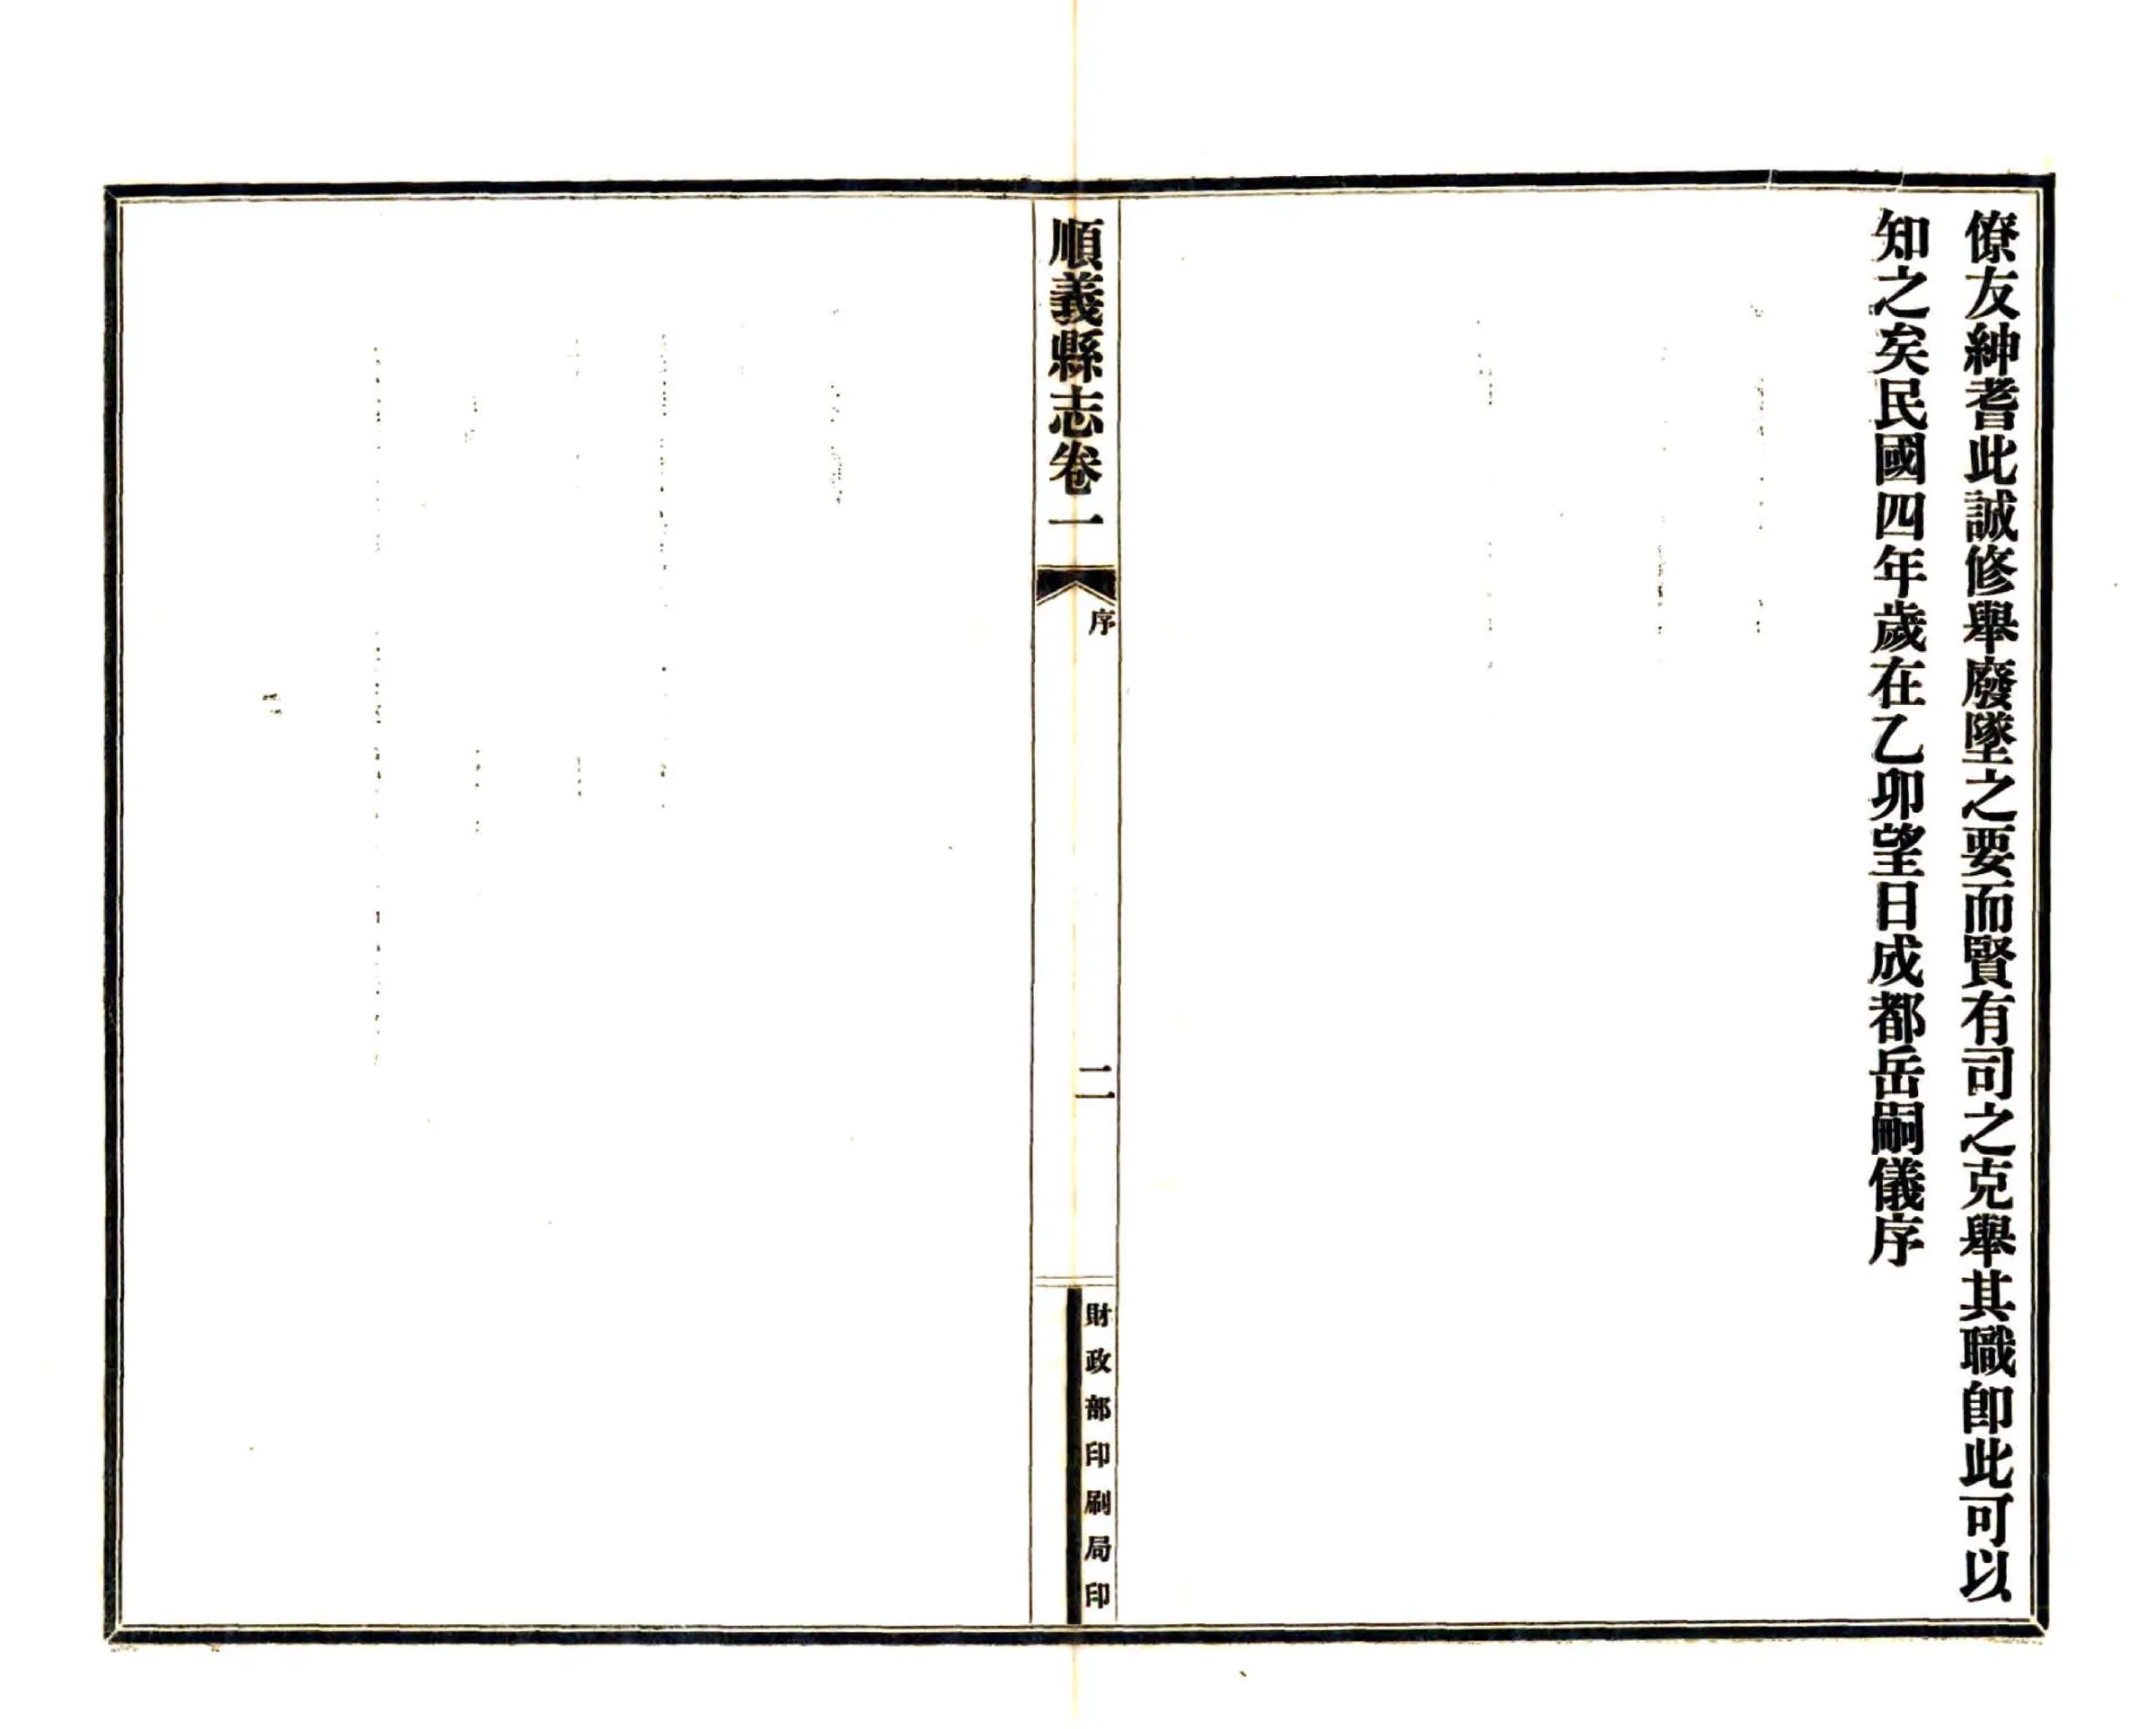 僚友紳耆此誠修舉廢墜之要而賢有司之克舉其職卽此可以
知之矣民國四年歲在乙卯望日成都岳嗣儀序
順義縣志卷一
序
二
財政部印刷局印